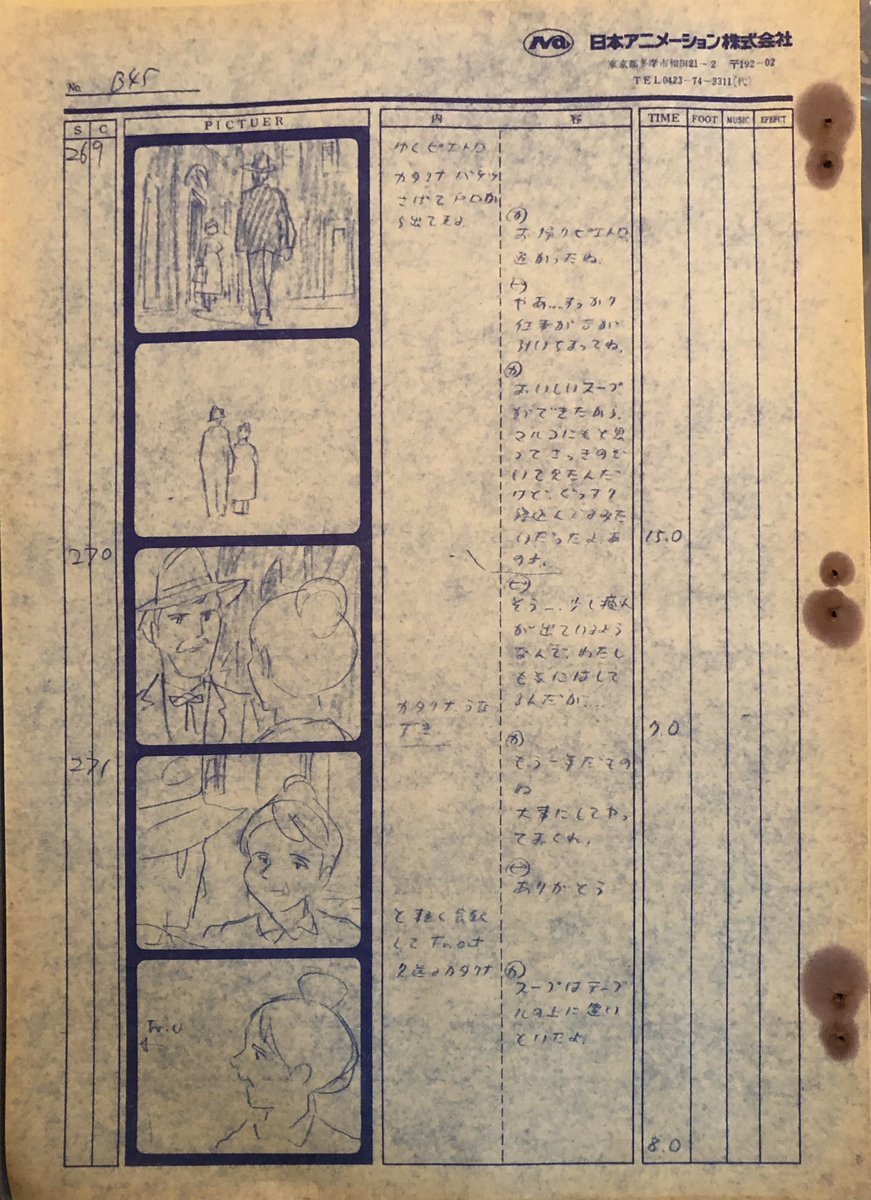 日本アニメーション株式会社
東京都多摩市和田21-2 〒192-02
TEL0423-74-3311(代)
No. B45
S C PICTUER 内 容 TIME FOOT MUSIC EFEFCT
269
ゆくピエトロ
カタリナ バケツ
さげて戸口か
ら出てくる
カ
お帰りピエトロ
遅かったね、
やあ…すっかり
仕事が長び
いちまってね、
カ
おいしいスープ
ができたから、
マルコにもと思
ってさっきのぞ
いて見たんだ
けど、ぐっすり
寝込んでるみた
いだったよ、あ
の子。
15.0
270
そう…、少し疲れ
が出ているよう
なんで、わたし
も気にはして
るんだが…
カタリナうな
ずき
7.0
271
カ
ね
大事にしてやっ
ておくれ、
ありがとう
と軽く会釈
して Fr.out
見送るカタリナ
カ
スープはテーブ
ルの上に置い
といたよ、
Fr.O
8.0